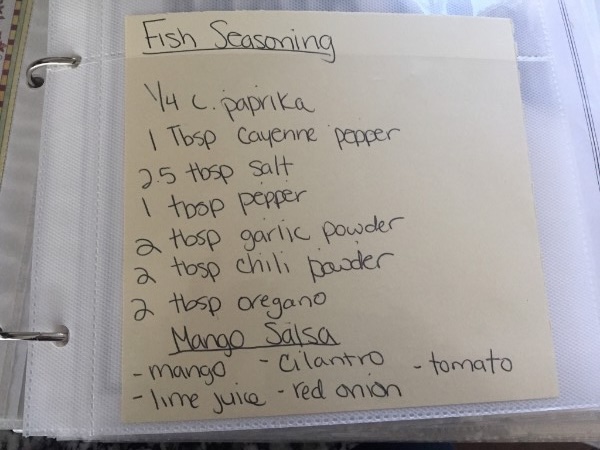 Fish Seasoning
1/4 c. paprika
1 Tbsp Cayenne pepper
2.5 tbsp salt
1 tbsp pepper
2 tbsp garlic powder
2 tbsp chili powder
2 tbsp oregano
Mango Salsa
- mango - Cilantro - tomato
- lime juice - red onion